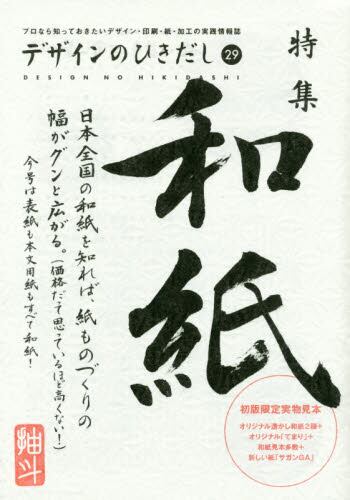 プロなら知っておきたいデザイン・印刷・紙・加工の実践情報誌
デザインのひきだし 29
DESIGN NO HIKIDASHI
特集
和紙
日本全国の和紙を知れば、紙ものづくりの
幅がグンと広がる。(価格だって思っているほど高くない!)
今号は表紙も本文用紙もすべて和紙!
初版限定実物見本
オリジナル透かし和紙2種+
オリジナル「てまり」+
和紙見本多数+
新しい紙「サガンGA」
抽斗